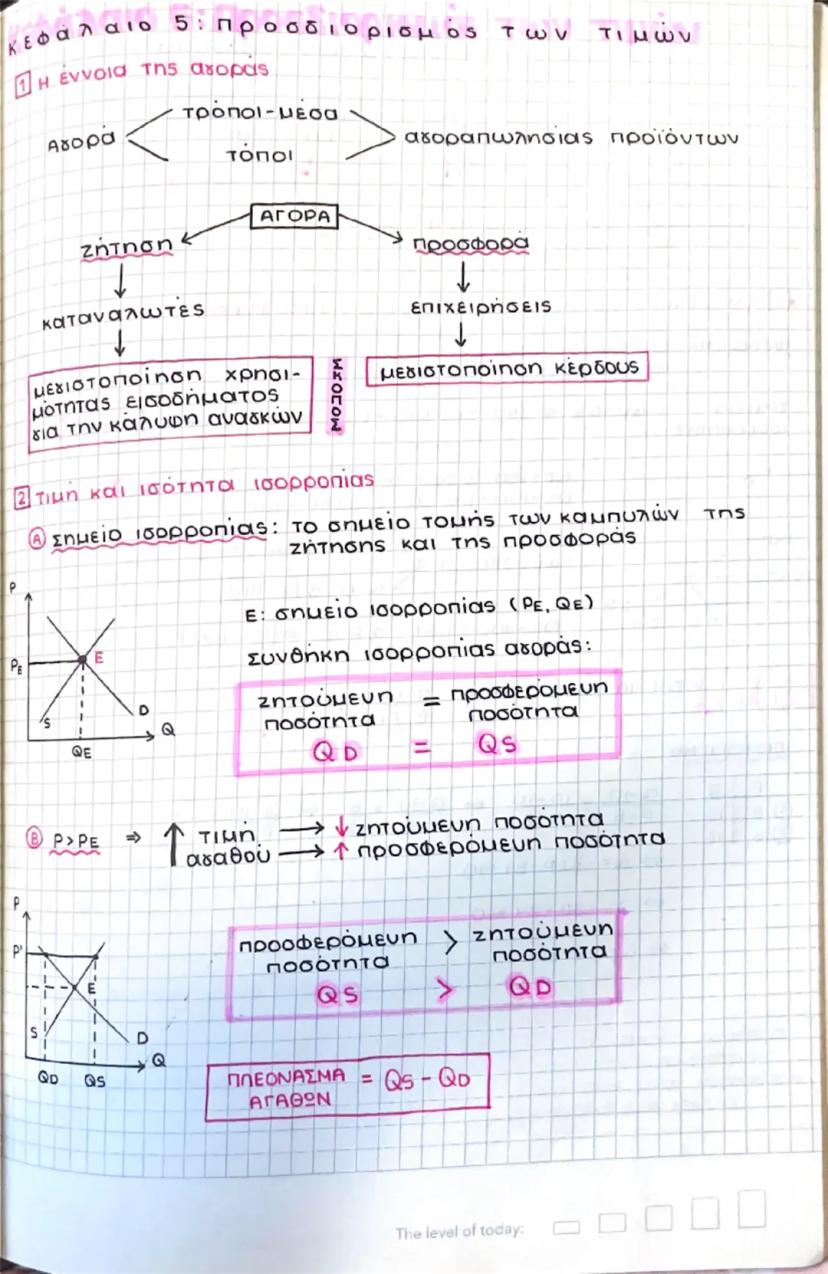 Κεφάλαιο 5: Προσδιορισμός των τιμών
1 Η έννοια της αγοράς
τρόποι-μέσα
Αγορά
αγοραπωλησίας προϊόντων
τόποι
ΑΓΟΡΑ
ζήτηση
προσφορά
καταναλωτές
επιχειρήσεις
μεγιστοποίηση χρησι-
μότητας εισοδήματος
για την κάλυψη αναγκών
ΣΚΟΠΟΣ
μεγιστοποίηση κέρδους
2 Τιμή και ισότητα ισορροπίας
Α Σημείο ισορροπίας: το σημείο τομής των καμπυλών της
ζήτησης και της προσφοράς
P
PE
E
S
D
Q
QE
E: σημείο ισορροπίας (PE, QE)
Συνθήκη ισορροπίας αγοράς:
ζητούμενη = προσφερόμενη
ποσότητα ποσότητα
QD = QS
Β P>PE ⇒ ↑ τιμή → ↓ ζητούμενη ποσότητα
αγαθού → ↑ προσφερόμενη ποσότητα
P
P'
E
S
D
Q
QD QS
προσφερόμενη > ζητούμενη
ποσότητα ποσότητα
QS > QD
ΠΛΕΟΝΑΣΜΑ = QS - QD
ΑΓΑΘΩΝ
The level of today: